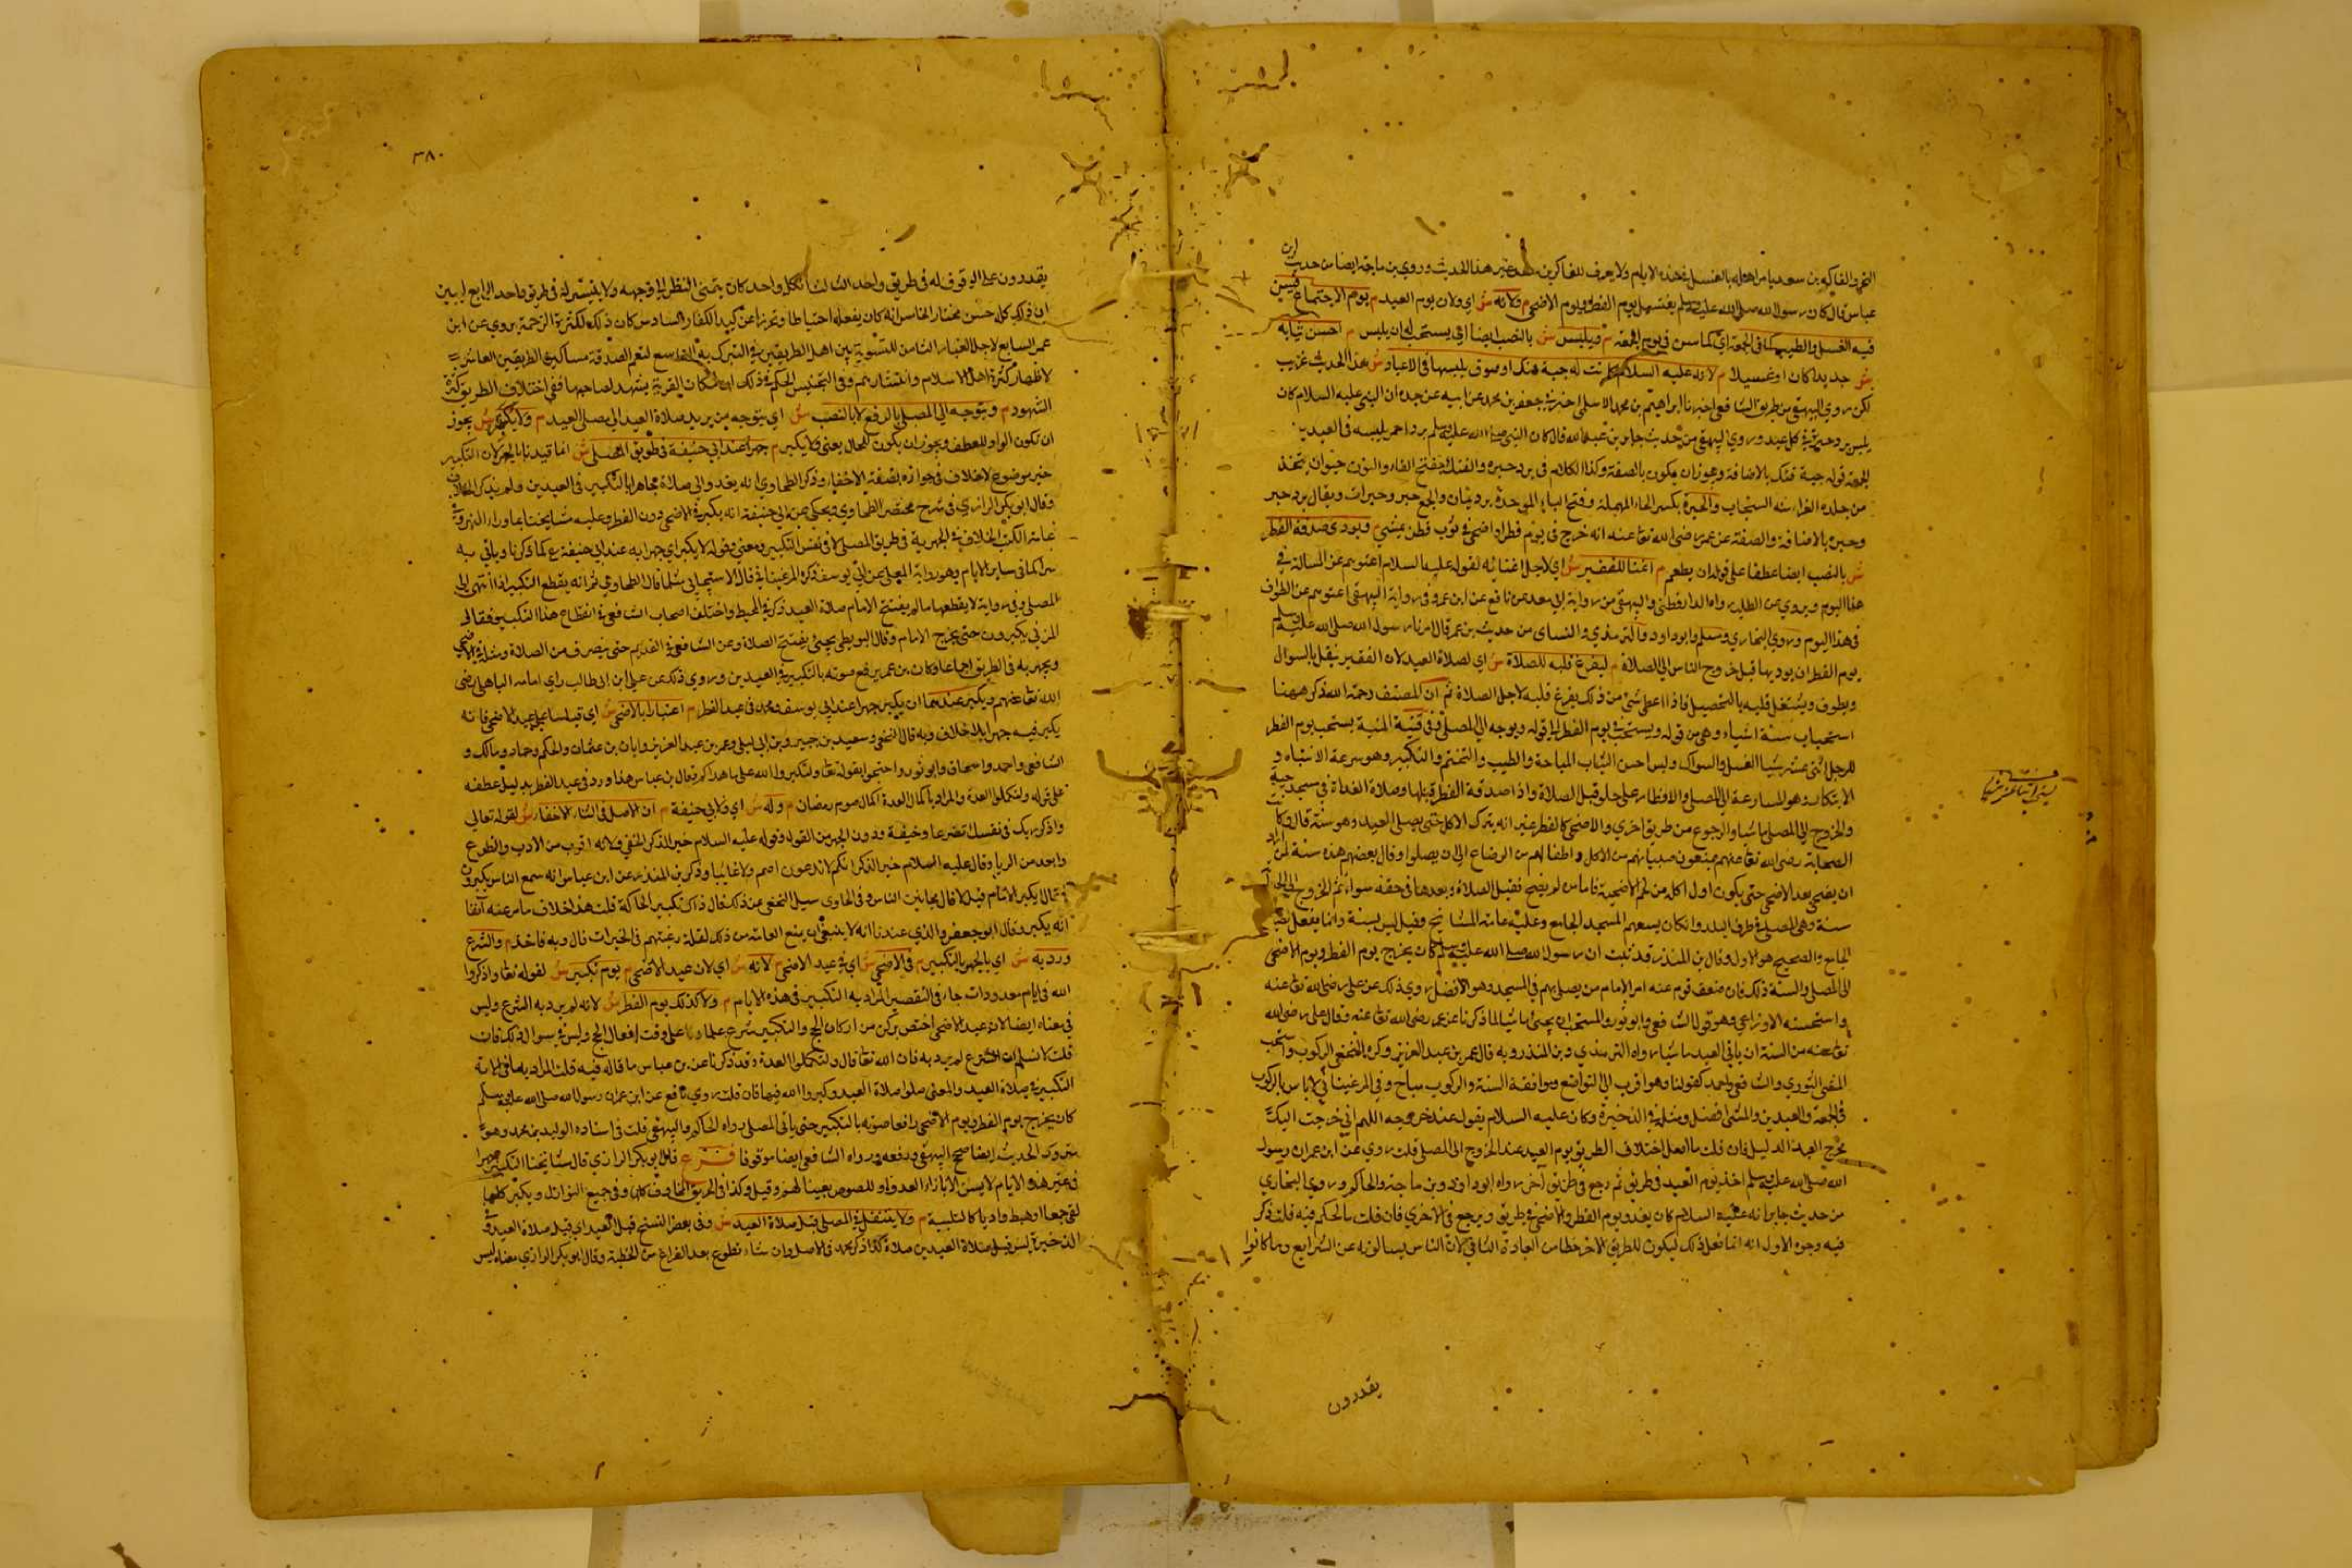 النحر والفاكه بن سعد يأمر اهله بالغسل في هذه الايام ولا يعرف للفاكه غير هذا الحديث وروي بن ماجة ايضا من حديث ابن
عباس قال كان رسول الله صلى الله عليه وسلم يغتسل يوم الفطر ويوم الاضحى م ولانه ش اي ولان يوم العيد م يوم الاجتماع فيسن
فيه الغسل والطيب كما في الجمعة اي كما سن في يوم الجمعة م ويلبس ش بالنصب ايضا اي يستحب له ان يلبس م احسن ثيابه
ش جديدا كان او غسيلا م لانه عليه السلام كانت له جبة فنك او صوف يلبسها في الاعياد ش هذا الحديث غريب
لكن روي البيهقي من طريق الشافعي اخبرنا ابراهيم بن محمد الاسلمي اخبرني جعفر بن محمد عن ابيه عن جده ان النبي عليه السلام كان
يلبس برد حبرة في كل عيد وروي البيهقي من حديث جابر بن عبد الله قال كان النبي صلى الله عليه وسلم برد احمر يلبسه في العيدين
الجمعة قوله جبة فنك بالاضافة ويجوز ان يكون بالصفة وكذا الكلام في برد حبرة والفنك بفتح الفاء والنون حيوان يتخذ
من جلده الفراء شبه السنجاب والحبرة بكسر الحاء المهملة وفتح الباء الموحدة برد يمان والجمع حبر وحبرات ويقال برد حبر
وحبرة بالاضافة والصفة عن عمر رضي الله تعا عنه انه خرج في يوم فطر او اضحى في ثوب قطن يمشي م ويودي صدقة الفطر
ش بالنصب ايضا عطفا على قوله ان يطعم م اغناء للفقير ش اي لاجل اغنائه لقوله عليه السلام اغنوهم عن المسألة في
هذا اليوم ويروي عن الطلب رواه الدارقطني والبيهقي من رواية ابي معد عن نافع عن ابن عمر وفي رواية البيهقي اغنوهم عن الطواف
في هذا اليوم وروي البخاري ومسلم وابو داود والترمذي والنسائ من حديث بن عمر قال امرنا رسول الله صلى الله عليه وسلم
يوم الفطر ان يوديها قبل خروج الناس الى الصلاة م ليفرغ قلبه للصلاة ش اي لصلاة العيد لان الفقير يقبل بالسوال
ويطوف ويشتغل قلبه بالتحصيل فاذا اعطى شئ من ذلك يفرغ قلبه لاجل الصلاة ثم ان المصنف رحمه الله ذكر ههنا
استحباب ستة اشياء وهي من قوله ويستحب في يوم الفطر الى قوله ويوجه الى المصلى وفي قنية المنية يستحب يوم الفطر
للرجل اثنى عشر شيا الغسل والسواك ولبس احسن الثياب المباحة والطيب والتختم والتكبير وهو سرعة الانتباه و
الابتكار وهو المسارعة الى المصلى والافطار على حلو قبل الصلاة واذا صدقة الفطر قبلها وصلاة الغداة في مسجد حيه
والخروج الى المصلى ماشيا والرجوع من طريق اخري والاضحى كالفطر غير انه يترك الاكل حتى يصلي العيد وهو سنة قال وكانت
الصحابة رضي الله تعا عنهم يمنعون صبيانهم من الاكل واطفالهم من الرضاع الى ان يصلوا وقال بعضهم هذه سنة لمن اراد
ان يضحي بعد الاضحى حتى يكون اول اكله من لحم الاضحية فاما من لم يضح فقبل الصلاة وبعدها في حقه سواء ثم الخروج الى
سنة وهي المصلى في طرف البلد وان كان يسعهم المسجد الجامع وعليه عامة المشايخ وقيل ليس بسنة وانما يفعل لضيق
الجامع والصحيح هو الاول وقال بن المنذر قد ثبت ان رسول الله صلى الله عليه وسلم كان يخرج يوم الفطر ويوم الاضحى
الى المصلى والسنة ذلك فان ضعف قوم عنه امر الامام من يصلي بهم في المسجد وهو الافضل روي ذلك عن علي رضي الله تعا عنه
واستحسنه الاوزاعي وهو قول الشافعي وابو ثور والمستحب ان يجئ ماشيا لما ذكرنا عن عمر رضي الله تعا عنه وقال علي رضي الله
تعا عنه من السنة ان ياتي العيد ماشيا رواه الترمذي وبن المنذر وبه قال عمر بن عبد العزيز وكره النخعي الركوب واستحب
المشي الثوري والشافعي واحمد كقولنا وهو اقرب الى التواضع وموافقة السنة والركوب مباح وفي المرغيناني لا باس بالركوب
في الجمعة والعيدين والمشي افضل ومثله في الذخيرة وكان عليه السلام يقول عند خروجه اللهم اني خرجت اليك
مخرج العبد الذليل فان قلت ما العل اختلاف الطريق يوم العيد عند الخروج الى المصلى قلت روي عن ابن عمر ان رسول
الله صلى الله عليه وسلم اخذ يوم العيد في طريق ثم رجع في طريق آخر رواه ابو داود وبن ماجة والحاكم وروي البخاري
من حديث جابر انه عليه السلام كان يغدو يوم الفطر والاضحى في طريق ويرجع في الاخري فان قلت ما الحكم فيه قلت ذكر
فيه وجوه الاول انه انما فعل ذلك ليكون للطريق الاخر حظا من العبادة الثاني لان الناس يسالونه عن الشرايع وما كانوا
يقدرون
٣٨٠
يقدرون على الوقوف له في طريق واحد الثالث ان كل واحد كان يتمنى النظر الى وجهه ولا يتيسر له في طريق واحد الرابع ليبين
ان ذلك كله حسن مختار الخامس انه كان يفعله احتياطا وتحرزا عن كيد الكفار السادس كان ذلك لكثرة الزحمة يروي عن ابن
عمر السابع لاجل الغبار الثامن للتسوية بين اهل الطريقين في التبرك به التاسع لتعم الصدقة مساكين الطريقين العاشر
لاظهار كثرة اهل الاسلام وانتشارهم وفي التجنيس الحكم في ذلك ان مكان القربة يشهد لصاحبها ففي اختلاف الطريق كثرة
الشهود م ويتوجه الى المصلى بالرفع لا بالنصب ش اي يتوجه من يريد صلاة العيد الى مصلى العيد م ولا يكبر ش يجوز
ان تكون الواو للعطف ويجوز ان يكون للحال يعني ولا يكبر م جهرا عند ابي حنيفة في طريق المصلى ش انما قيدنا بالجهر لان التكبير
خير موضوع لاخلاف في جوازه بصفة الاخفاء وذكر الطحاوي انه يغدو الى صلاة مجاهرا بالتكبير في العيدين ولم يذكر الخلاف
وقال ابو بكر الرازي في شرح مختصر الطحاوي ويحكى عن ابي حنيفة انه يكبر في الاضحى دون الفطر وعليه مشايخنا بما وراء النهر وفي
عامة الكتب الخلاف في الجهر به في طريق المصلى لا في نفس التكبير ومعنى قوله لا يكبر اي جهرا به عند ابي حنيفة ع كما ذكرنا وياتي به
سرا كما في سائر الايام وهو رواية المعلى عن ابي يوسف ذكره المرغيناني قال الاسبيجابي مثل ما قال الطحاوي ثم انه يقطع التكبير اذا انتهى الى
المصلى وفي رواية لا يقطعها ما لم يفتتح الامام صلاة العيد ذكره في المحيط واختلف اصحاب الشافعي في انقطاع هذا التكبير فقال
المزني يكبرون حتى يخرج الامام وقال البويطي حتى يفتتح الصلاة وعن الشافعي في القديم حتى ينصرف من الصلاة ومثله في الاضحى
ويجهر به في الطريق اجماعا وكان بن عمر يرفع صوته بالتكبير في العيدين وروي ذلك عن علي ابن ابي طالب وابي امامه الباهلي رضي
الله تعا عنهم م ويكبر عندهما ان يكبر جهرا عند ابي يوسف ومحمد في عيد الفطر م اعتبارا بالاضحى ش اي قياسا على عيد الاضحى فانه
يكبر فيه جهرا بلا خلاف وبه قال النخعي وسعيد بن جبير وبن ابي ليلى وعمر بن عبد العزيز وابان بن عثمان والحكم وحماد ومالك و
الشافعي واحمد واسحاق وابو ثور واحتجوا بقوله تعا ولتكبروا الله على ما هداكم قال بن عباس هذا ورد في عيد الفطر بدليل عطفه
على قوله ولتكملوا العدة والمراد باكمال العدة اكمال صوم رمضان م وله ش اي ولابي حنيفة م ان الاصل في الثناء الاخفاء ش لقوله تعالى
واذكر ربك في نفسك تضرعا وخيفة ودون الجهر من القول وقوله عليه السلام خير الذكر الخفي ولانه اقرب من الادب والخشوع
وابعد من الرياء وقال عليه السلام خير الذكر انكم لا تدعون اصم ولا غائبا وذكر بن المنذر عن ابن عباس انه سمع الناس يكبرون
فقال ايكبر الامام قيل لا قال مجانين الناس وفي الحاوي سئل النخعي عن ذلك فقال ذاك تكبير الحاكة قلت هذا خلاف ما مر عنه آنفا
انه يكبر وقال ابو جعفر والذي عندنا انه لا ينبغي ان يمنع العامة من ذلك لقلة رغبتهم في الخيرات قال وبه فاخذ م والشرع
ورد به ش اي بالجهر بالتكبير م في الاضحى ش اي في عيد الاضحى م لانه ش اي لان عيد الاضحى م يوم تكبير ش لقوله تعا واذكروا
الله في ايام معدودات جاء في التفسير المراد به التكبير في هذه الايام م ولا كذلك يوم الفطر ش لانه لم يرد به الشرع وليس
في معناه ايضا لان عيد الاضحى اختص بركن من اركان الحج والتكبير شرع علما على وقت افعال الحج وليس في شوال ذلك فان
قلت لا نسلم ان الشرع لم يرد به فان الله تعا قال ولتكملوا العدة وقد ذكرنا عن بن عباس ما قاله فيه قلت المراد بما في الاية
التكبير في صلاة العيد والمعنى صلوا صلاة العيد وكبروا الله فيها فان قلت روي نافع عن ابن عمر ان رسول الله صلى الله عليه وسلم
كان يخرج يوم الفطر ويوم الاضحى رافعا صوته بالتكبير حتى ياتي المصلى رواه الحاكم والبيهقي قلت في اسناده الوليد بن محمد وهو
متروك الحديث ايضا صحح البيهقي وقفه ورواه الشافعي ايضا موقوفا فرع قال ابو بكر الرازي قال مشايخنا التكبير جهرا
في غير هذه الايام لا يسن الا بازاء العدو او للصوص تهيبا لهم وقيل وكذا في الحريق والمخاوف كلها وفي جميع النوازل ويكبر كلما
لقي جمعا او هبط واديا كالتلبية م ولا يتنفل في المصلى قبل صلاة العيد ش وفي بعض النسخ قبل العيد اي قبل صلاة العيد وفي
الذخيرة ليس قبل صلاة العيدين صلاة كذا ذكر محمد في الاصل وان شاء تطوع بعد الفراغ من الخطبة وقال ابو بكر الرازي معناه ليس